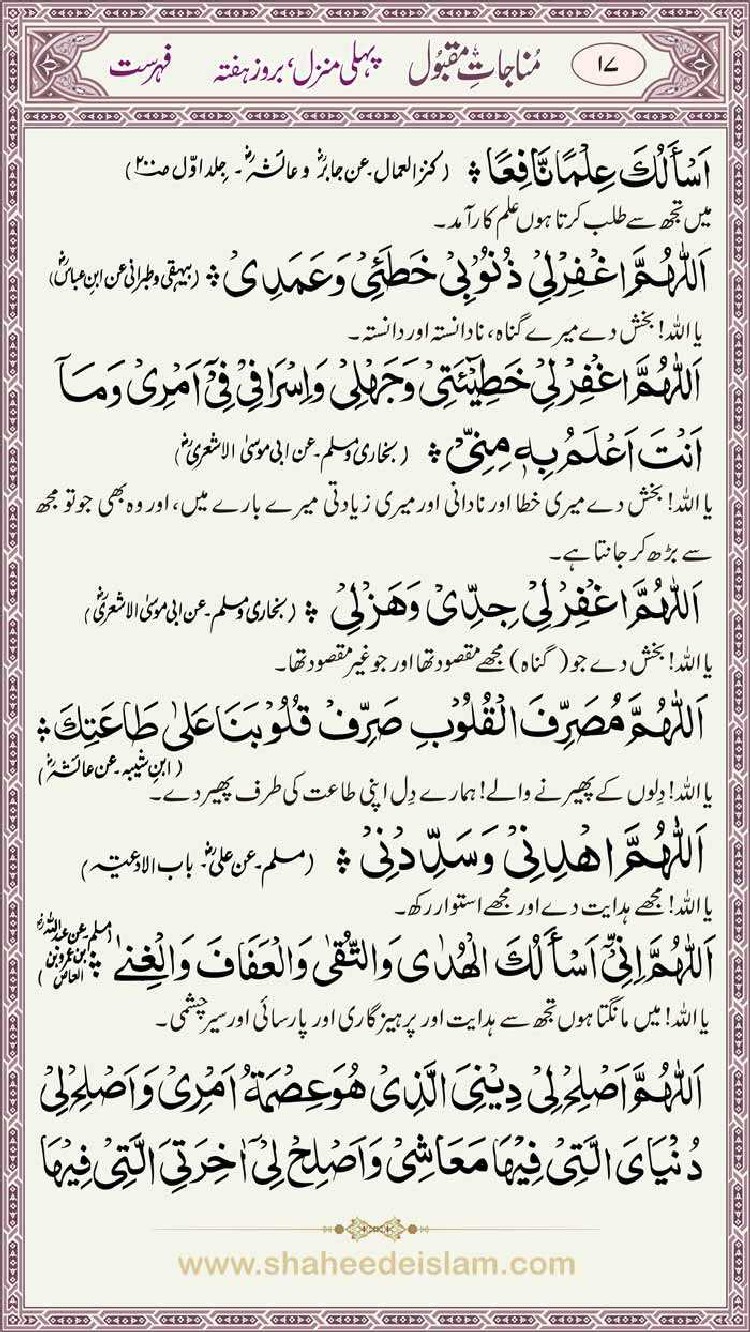 ۱۷ مُناجاتِ مقبُول پہلی منزل، بروز ہفتہ فہرست
اَسْأَلُكَ عِلْمًا نَّافِعًا ؞ (کنز العمال۔ عن جابرؓ و عائشہؓ۔ جلد اوّل ص۲۰۰)
میں تجھ سے طلب کرتا ہوں علم کارآمد۔
اَللّٰهُمَّ اغْفِرْلِیْ ذُنُوْبِیْ خَطَئِیْ وَعَمَدِیْ ؞ (بیہقی و طبرانی عن ابنِ عباسؓ)
یا اللہ! بخش دے میرے گناہ، نادانستہ اور دانستہ۔
اَللّٰهُمَّ اغْفِرْلِیْ خَطِیْٓئَتِیْ وَجَهْلِیْ وَاِسْرَافِیْ فِیْٓ اَمْرِیْ وَمَآ
اَنْتَ اَعْلَمُ بِهٖ مِنِّیْ ؞ (بخاری و مسلم۔ عن ابی موسیٰ الاشعریؓ)
یا اللہ! بخش دے میری خطا اور نادانی اور میری زیادتی میرے بارے میں، اور وہ بھی جو تو مجھ
سے بڑھ کر جانتا ہے۔
اَللّٰهُمَّ اغْفِرْلِیْ جِدِّیْ وَهَزْلِیْ ؞ (بخاری و مسلم۔ عن ابی موسیٰ الاشعریؓ)
یا اللہ! بخش دے جو (گناہ) مجھے مقصود تھا اور جو غیر مقصود تھا۔
اَللّٰهُمَّ مُصَرِّفَ الْقُلُوْبِ صَرِّفْ قُلُوْبَنَا عَلٰی طَاعَتِكَ ؞
(ابنِ شیبہ۔ عن عائشہؓ)
یا اللہ! دِلوں کے پھیرنے والے! ہمارے دِل اپنی طاعت کی طرف پھیر دے۔
اَللّٰهُمَّ اهْدِنِیْ وَسَدِّدْنِیْ ؞ (مسلم۔ عن علیؓ۔ باب الادعیہ)
یا اللہ! مجھے ہدایت دے اور مجھے استوار رکھ۔
اَللّٰهُمَّ اِنِّیْٓ اَسْأَلُكَ الْهُدٰی وَالتُّقٰی وَالْعَفَافَ وَالْغِنٰی ؞ (مسلم۔ عن عبداللہ بن عمرو بن العاصؓ)
یا اللہ! میں مانگتا ہوں تجھ سے ہدایت اور پرہیزگاری اور پارسائی اور سیر چشمی۔
اَللّٰهُمَّ اَصْلِحْ لِیْ دِیْنِیَ الَّذِیْ هُوَ عِصْمَةُ اَمْرِیْ وَاَصْلِحْ لِیْ
دُنْیَایَ الَّتِیْ فِیْهَا مَعَاشِیْ وَاَصْلِحْ لِیْٓ اٰخِرَتِیَ الَّتِیْ فِیْهَا
www.shaheedeislam.com